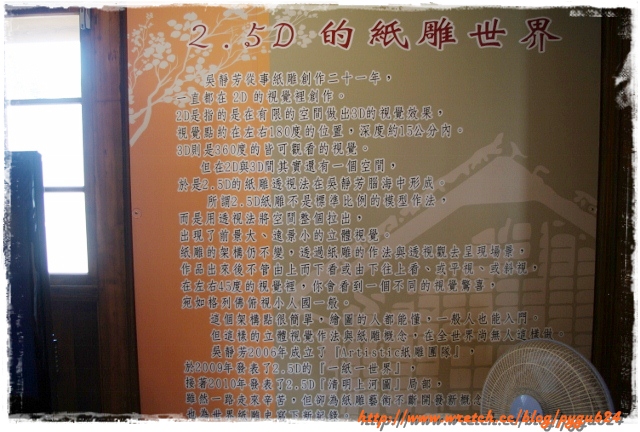 2.5D 的紙雕世界
吳靜芳從事紙雕創作二十一年，
一直都在 2D 的視覺裡創作。
2D是指的是在有限的空間做出3D的視覺效果，
視覺點約在左右180度的位置，深度約15公分內。
3D則是360度的皆可觀看的視覺。
但在2D與3D間其實還有一個空間，
於是2.5D的紙雕透視法在吳靜芳腦海中形成。
所謂2.5D紙雕不是標準比例的模型作法，
而是用透視法將空間整個拉出，
出現了前景大、遠景小的立體視覺。
紙雕的架構仍不變，透過紙雕的作法與透視觀去呈現場景，
作品出來後不管由上而下看或由下往上看、或平視、或斜視，
在左右45度的視覺裡，你會看到一個不同的視覺驚喜，
宛如格列佛俯視小人國一般。
這個架構點很簡單，繪圖的人都能懂，一般人也能入門。
但這樣的立體視覺作法與紙雕概念，在全世界尚無人這樣做。
吳靜芳2006年成立了『Artistic紙雕團隊』，
於2009年發表了2.5D的『一紙一世界』，
接著2010年發表了2.5D『清明上河圖』局部，
雖然一路走來辛苦，但卻為紙雕藝術不斷開發新概念
也為世界紙雕
http://www.wretch.cc/blog/pygu684